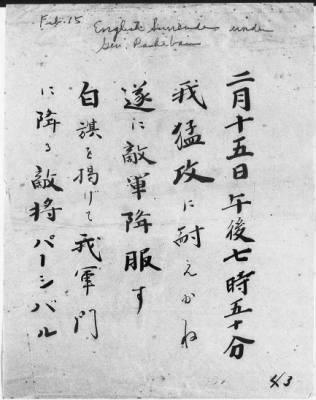 Feb. 15 English Surrender under
Gen. Percival
二月十五日午後七時五十分
我猛攻に耐えかね
遂に敵軍降服す
白旗を掲げて我軍門
に降る敵将パーシバル